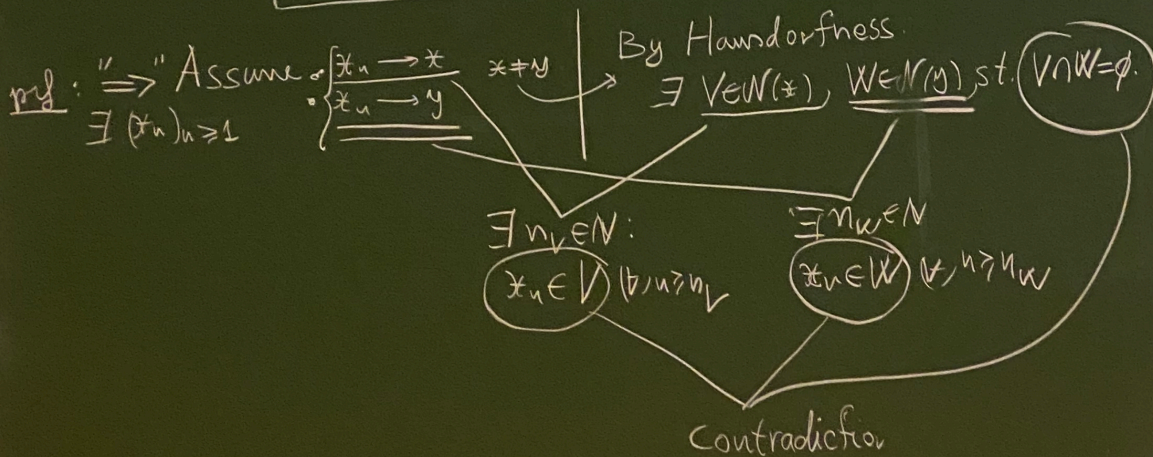 pf: "⟹" Assume
∃ (x_n)_{n≥1}
x_n → x
x_n → y
x≠y
By Hausdorfness.
∃ V∈N(x), W∈N(y), st. V∩W=∅.
∃ n_V∈N:
x_n ∈ V (∀, n≥n_V
∃ n_W∈N
x_n∈W (∀, n≥n_W
Contradiction